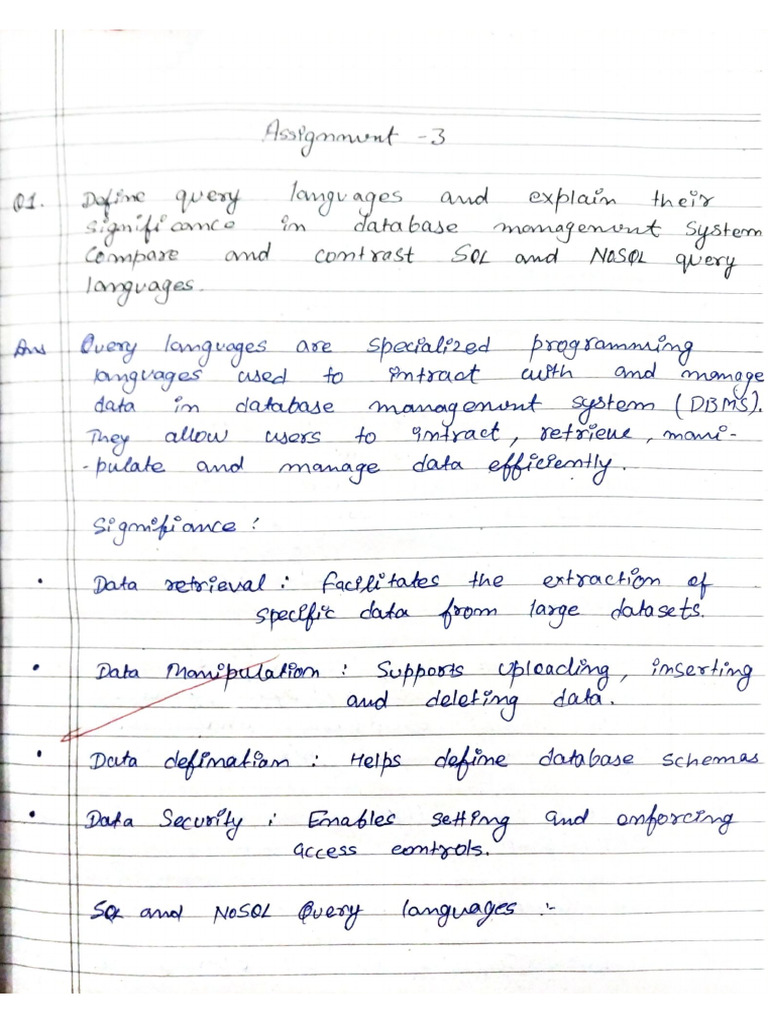 Assignment -3
Q1. Define query languages and explain their
significance in database management system
Compare and contrast SQL and NoSQL query
languages.
Ans Query languages are specialized programming
languages used to intract with and manage
data in database management system (DBMS).
They allow users to intract, retrieve, mani-
-pulate and manage data efficiently.
Signifiance :
• Data retrieval : Facilitates the extraction of
specific data from large datasets.
• Data Manipulation : Supports Uploading, inserting
and deleting data.
• Data defination : Helps define database schemas
• Data Security : Enables setting and enforcing
access controls.
SQL and NoSQL Query languages :-